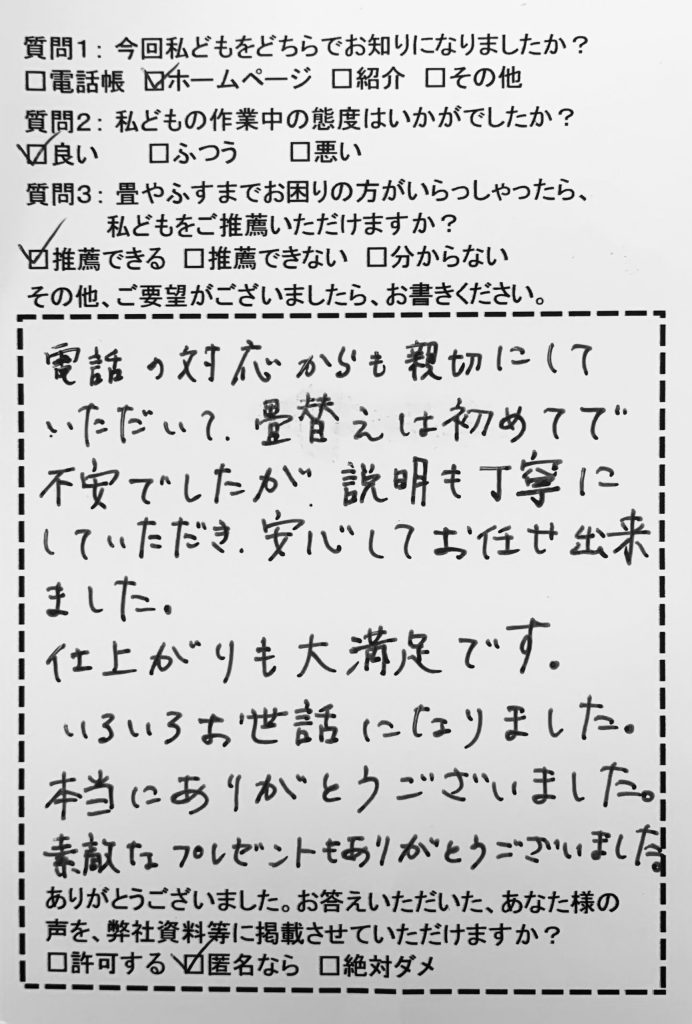 質問1：今回私どもをどちらでお知りになりましたか？
□電話帳 ☑ホームページ □紹介 □その他
質問2：私どもの作業中の態度はいかがでしたか？
☑良い □ふつう □悪い
質問3：畳やふすまでお困りの方がいらっしゃったら、
私どもをご推薦いただけますか？
☑推薦できる □推薦できない □分からない
その他、ご要望がございましたら、お書きください。
電話の対応からも親切にして
いただいて、畳替えは初めてで
不安でしたが、説明も丁寧に
していただき、安心してお任せ出来
ました。
仕上がりも大満足です。
いろいろお世話になりました。
本当にありがとうございました。
素敵なプレゼントもありがとうございました。
ありがとうございました。お答えいただいた、あなた様の
声を、弊社資料等に掲載させていただけますか？
□許可する ☑匿名なら □絶対ダメ